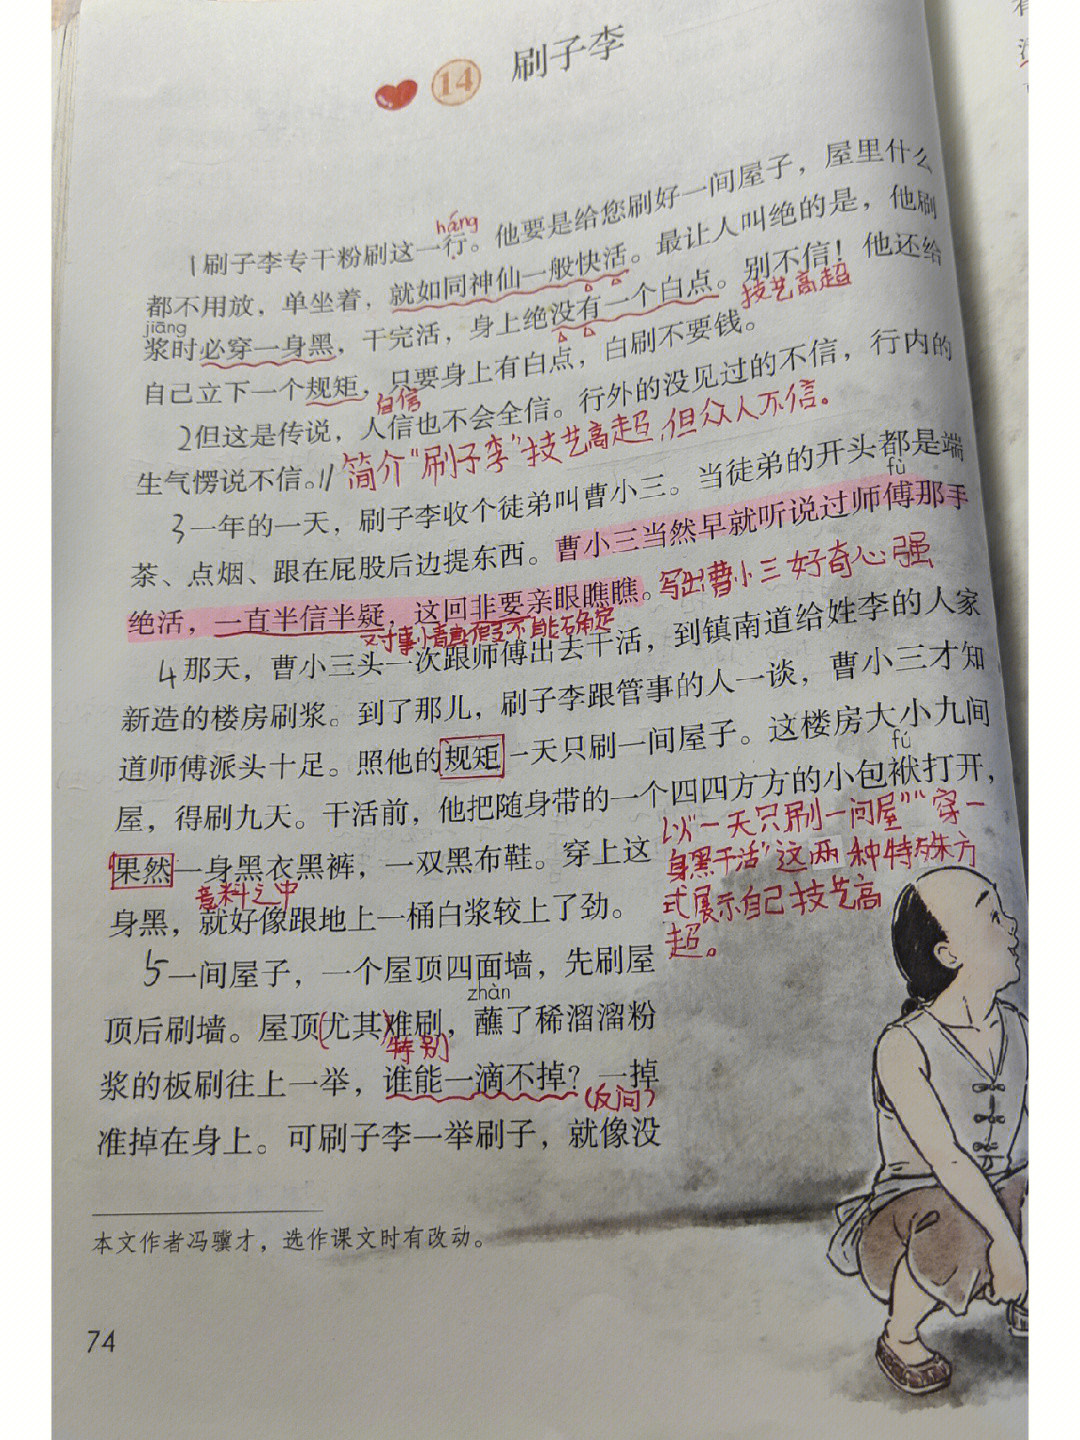 14 刷子李
háng
1刷子李专干粉刷这一行。他要是给您刷好一间屋子，屋里什么
都不用放，单坐着，就如同神仙一般快活。最让人叫绝的是，他刷
jiāng
浆时必穿一身黑，干完活，身上绝没有一个白点。别不信！他还给
技艺高超
自己立下一个规矩，只要身上有白点，白刷不要钱。
自信
2但这是传说，人信也不会全信。行外的没见过的不信，行内的
生气愣说不信。// 简介“刷子李”技艺高超，但众人不信。
fù
3一年的一天，刷子李收个徒弟叫曹小三。当徒弟的开头都是端
茶、点烟、跟在屁股后边提东西。曹小三当然早就听说过师傅那手
绝活，一直半信半疑，这回非要亲眼瞧瞧。写出曹小三好奇心强
对事情真假不能确定
4那天，曹小三头一次跟师傅出去干活，到镇南道给姓李的人家
新造的楼房刷浆。到了那儿，刷子李跟管事的人一谈，曹小三才知
道师傅派头十足。照他的规矩一天只刷一间屋子。这楼房大小九间
fú
屋，得刷九天。干活前，他把随身带的一个四四方方的小包袱打开，
果然一身黑衣黑裤，一双黑布鞋。穿上这
意料之中
身黑，就好像跟地上一桶白浆较上了劲。
以“一天只刷一间屋”“穿一
身黑干活”这两种特殊方
式展示自己技艺高
超。
5一间屋子，一个屋顶四面墙，先刷屋
zhàn
顶后刷墙。屋顶(尤其)难刷，蘸了稀溜溜粉
特别
浆的板刷往上一举，谁能一滴不掉？一掉
(反问)
准掉在身上。可刷子李一举刷子，就像没
本文作者冯骥才，选作课文时有改动。
74